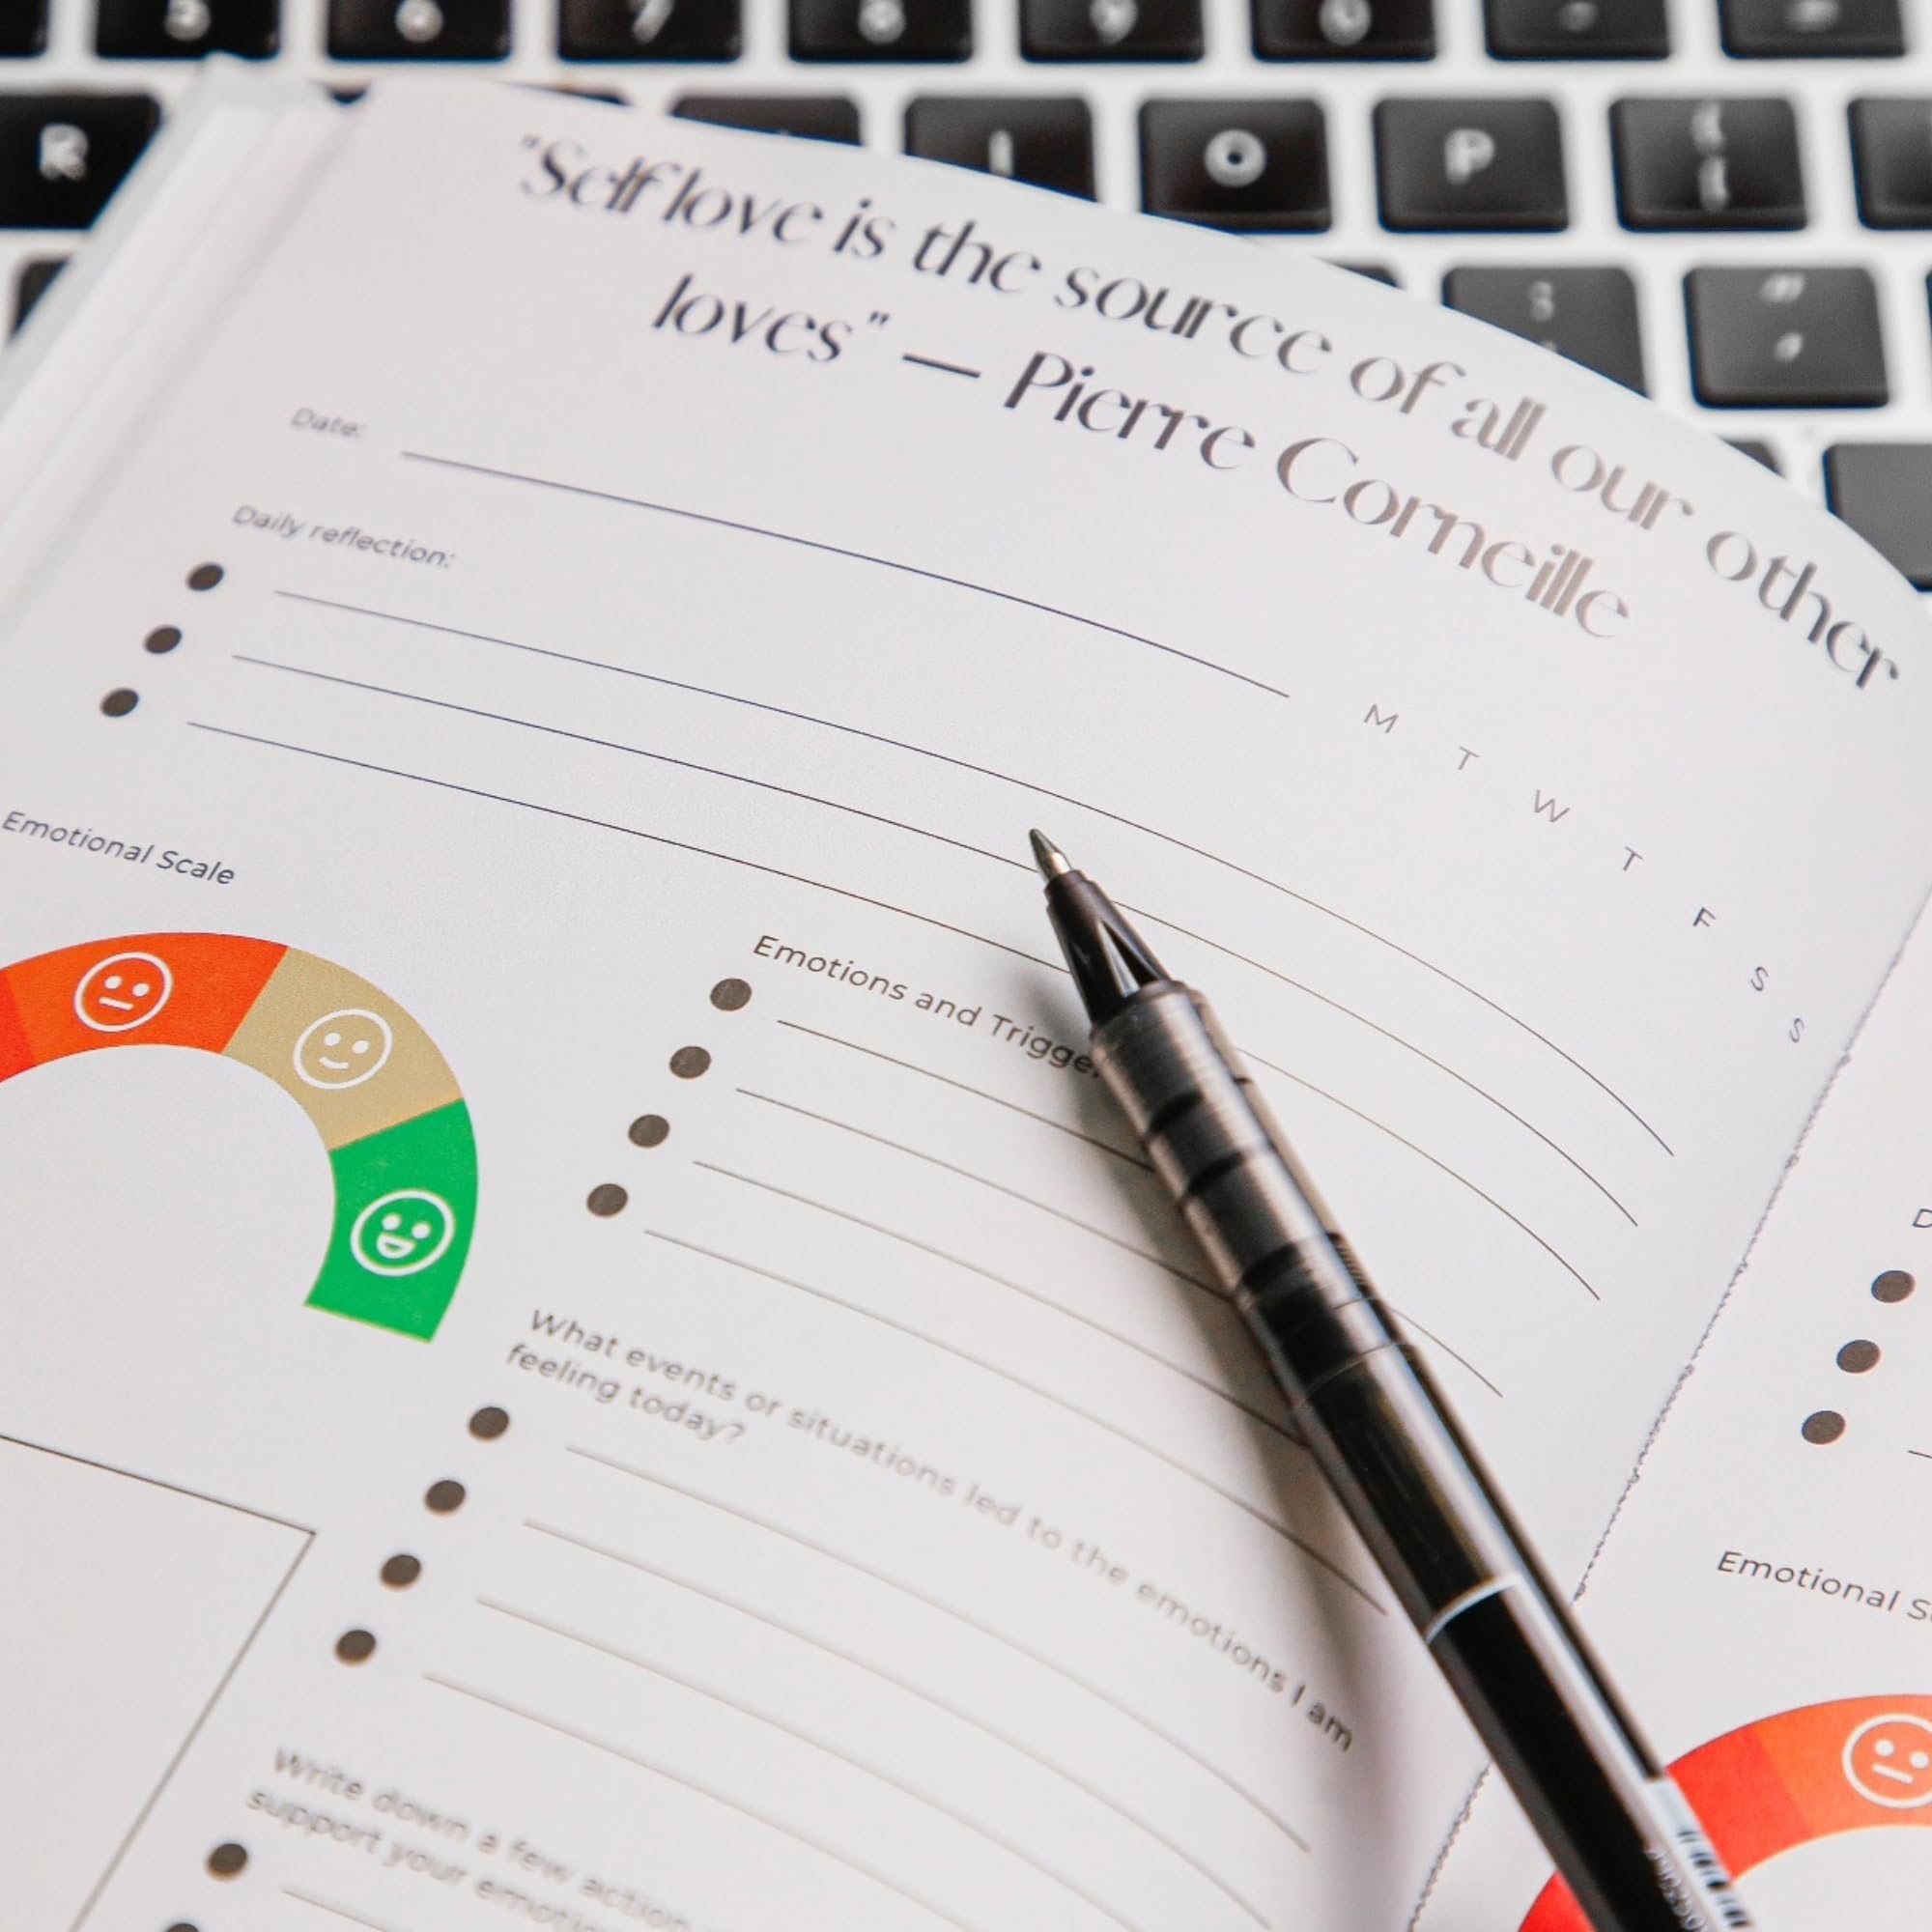 5 6 7 8 9 0
R I O P
"Self love is the source of all our other
loves" — Pierre Corneille
Date:
M T W T F S S
Daily reflection:
Emotional Scale
Emotions and
What events or situations led to the emotions I am
feeling today?
Write down a few action
support your
D
Emotional